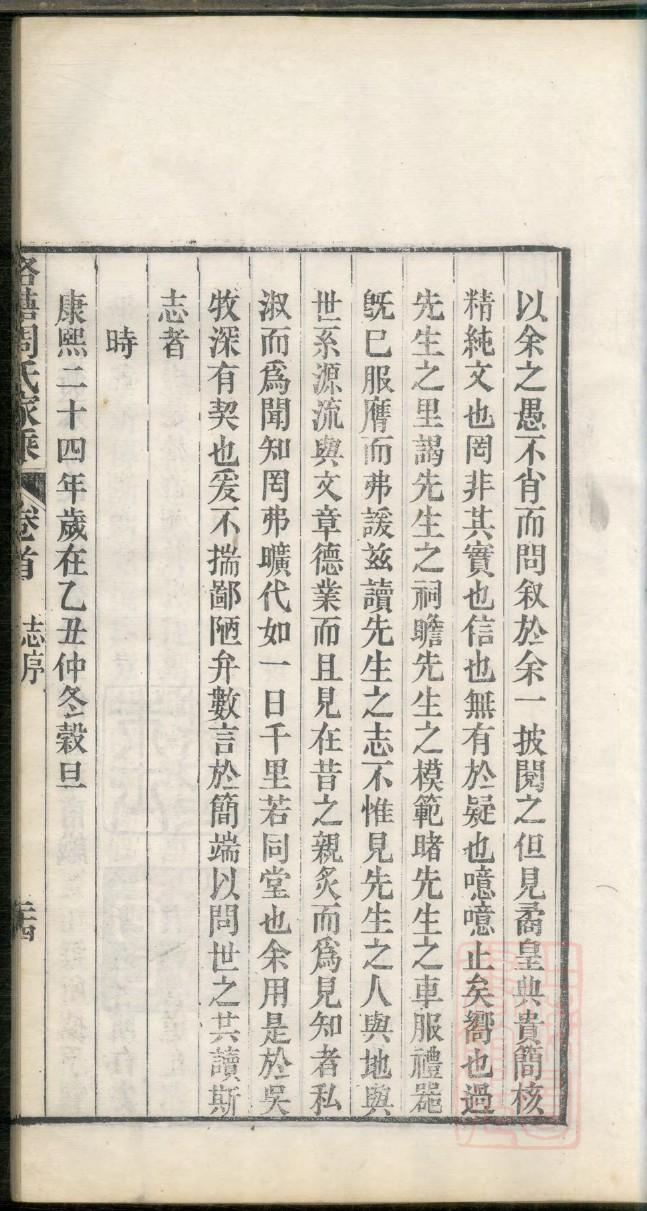 以余之愚不肖而問叙於余一披閱之但見矞皇典貴簡核
精純文也罔非其實也信也無有於疑也噫噫止矣嚮也過
先生之里謁先生之祠瞻先生之模範睹先生之車服禮器
旣已服膺而弗諼兹讀先生之志不惟見先生之人與地與
世系源流與文章德業而且見在昔之親炙而爲見知者私
淑而爲聞知罔弗曠代如一日千里若同堂也余用是於吳
牧深有契也爰不揣鄙陋弁數言於簡端以問世之其讀斯
志者
時
康熙二十四年歲在乙丑仲冬穀旦
周氏家乘 卷首 志序